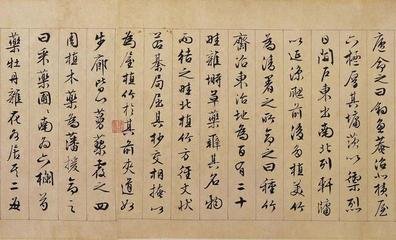 廬命之曰釣魚菴沼北橫屋
六楹厚其墉茨以禦烈
日開戶東出南北列軒牖
以延涼颸前後多植美竹
為清暑之所命之曰種竹
齋沼東治地為百有二十
畦雜蒔草藥辨其名物
而揭之畦北植竹方徑丈狀
若棊局屈其杪交相掩以
為屋植竹於其前夾道如
步廊皆以蔓藥覆之四
周植木藥為藩援命之
曰采藥圃圃南為六欄芍
藥牡丹雜花各居其二每